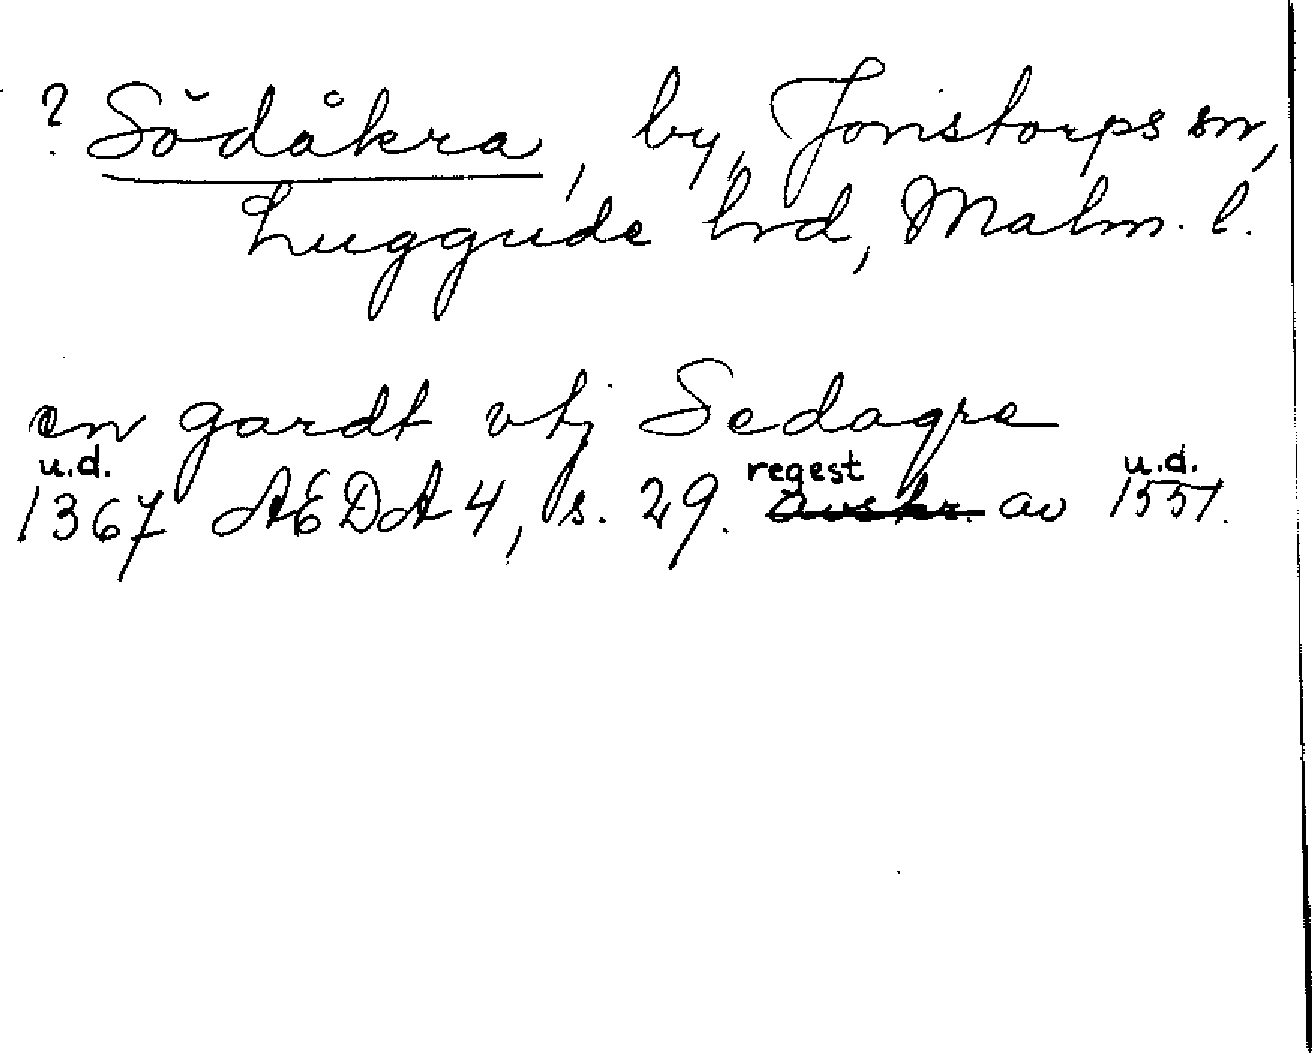 ? Södåkra, by, Jonstorps sn,
Luggude hrd, Malm. l.
en gardt vtj Sedagre
u.d. regest u.d.
1367 AEDA 4, s. 29. avskr. av 1551.